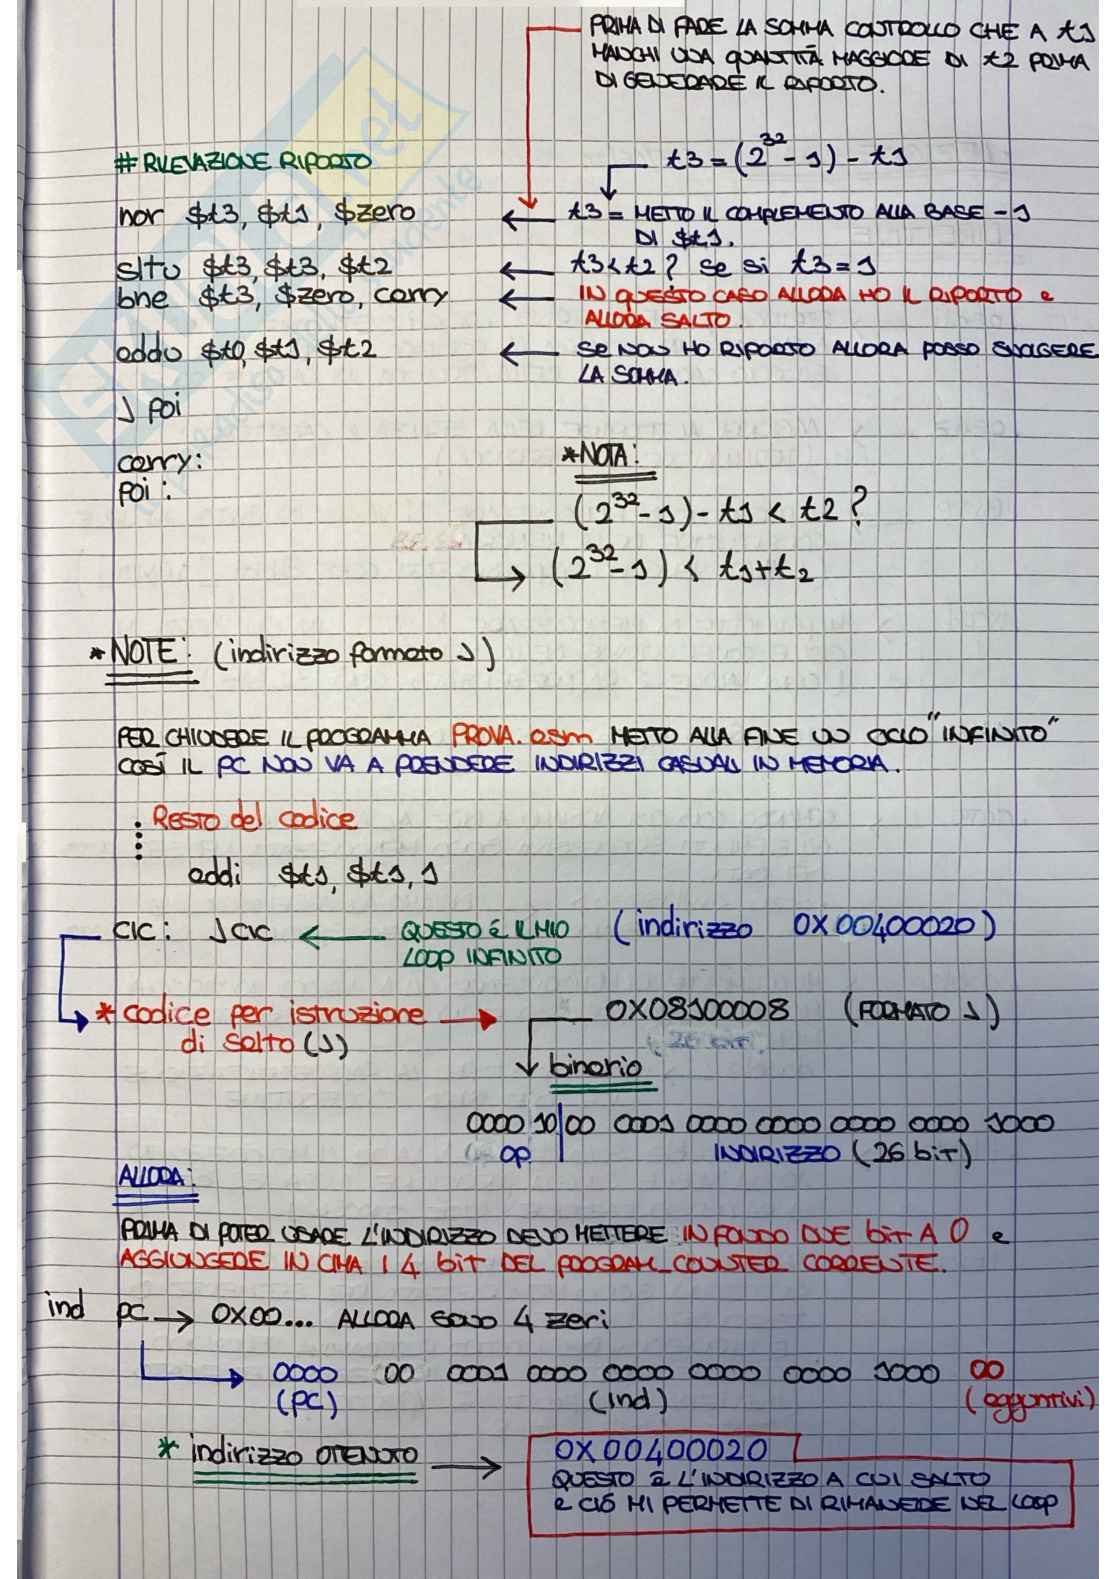 PRIMA DI FARE LA SOMMA CONTROLLO CHE A t1
MANCHI UNA QUANTITÀ MAGGIORE DI t2 PRIMA
DI GENERARE IL RIPORTO.
# RILEVAZIONE RIPORTO
t3 = (2^32 - 1) - t1
nor $t3, $t1, $zero ← t3 = METTO IL COMPLEMENTO ALLA BASE - 1
DI $t1.
sltu $t3, $t3, $t2 ← t3 < t2? se si t3 = 1
bne $t3, $zero, carry ← IN QUESTO CASO ALLORA HO IL RIPORTO e
ALLORA SALTO.
addu $t0, $t1, $t2 ← se NON HO RIPORTO ALLORA POSSO SVOLGERE
LA SOMMA.
J poi
carry:
poi:
*NOTA:
(2^32 - 1) - t1 < t2?
(2^32 - 1) < t1 + t2
*NOTE: (indirizzo formato J)
PER CHIUDERE IL PROGRAMMA PROVA.asm METTO ALLA FINE UN CICLO "INFINITO"
COSÌ IL PC NON VA A PRENDERE INDIRIZZI CASUALI IN MEMORIA.
Resto del codice
addi $t1, $t1, 1
CIC: J CIC ← QUESTO É IL MIO (indirizzo 0X00400020)
LOOP INFINITO
* codice per istruzione → 0X08100008 (FORMATO J)
di salto (J)
binario
0000 10|00 0001 0000 0000 0000 0000 1000
OP. INDIRIZZO (26 bit)
ALLORA:
PRIMA DI POTER USARE L'INDIRIZZO DEVO METTERE IN FONDO DUE bit A 0 e
AGGIUNGERE IN CIMA I 4 bit DEL PROGRAM COUNTER CORRENTE.
ind pc → 0X00... ALLORA sono 4 zeri
0000 00 0001 0000 0000 0000 0000 1000 00
(pc) (ind) (aggiuntivi)
* indirizzo OTENUTO → 0X00400020
QUESTO è L'INDIRIZZO A CUI SALTO
e CIÓ MI PERMETTE DI RIMANERE NEL LOOP